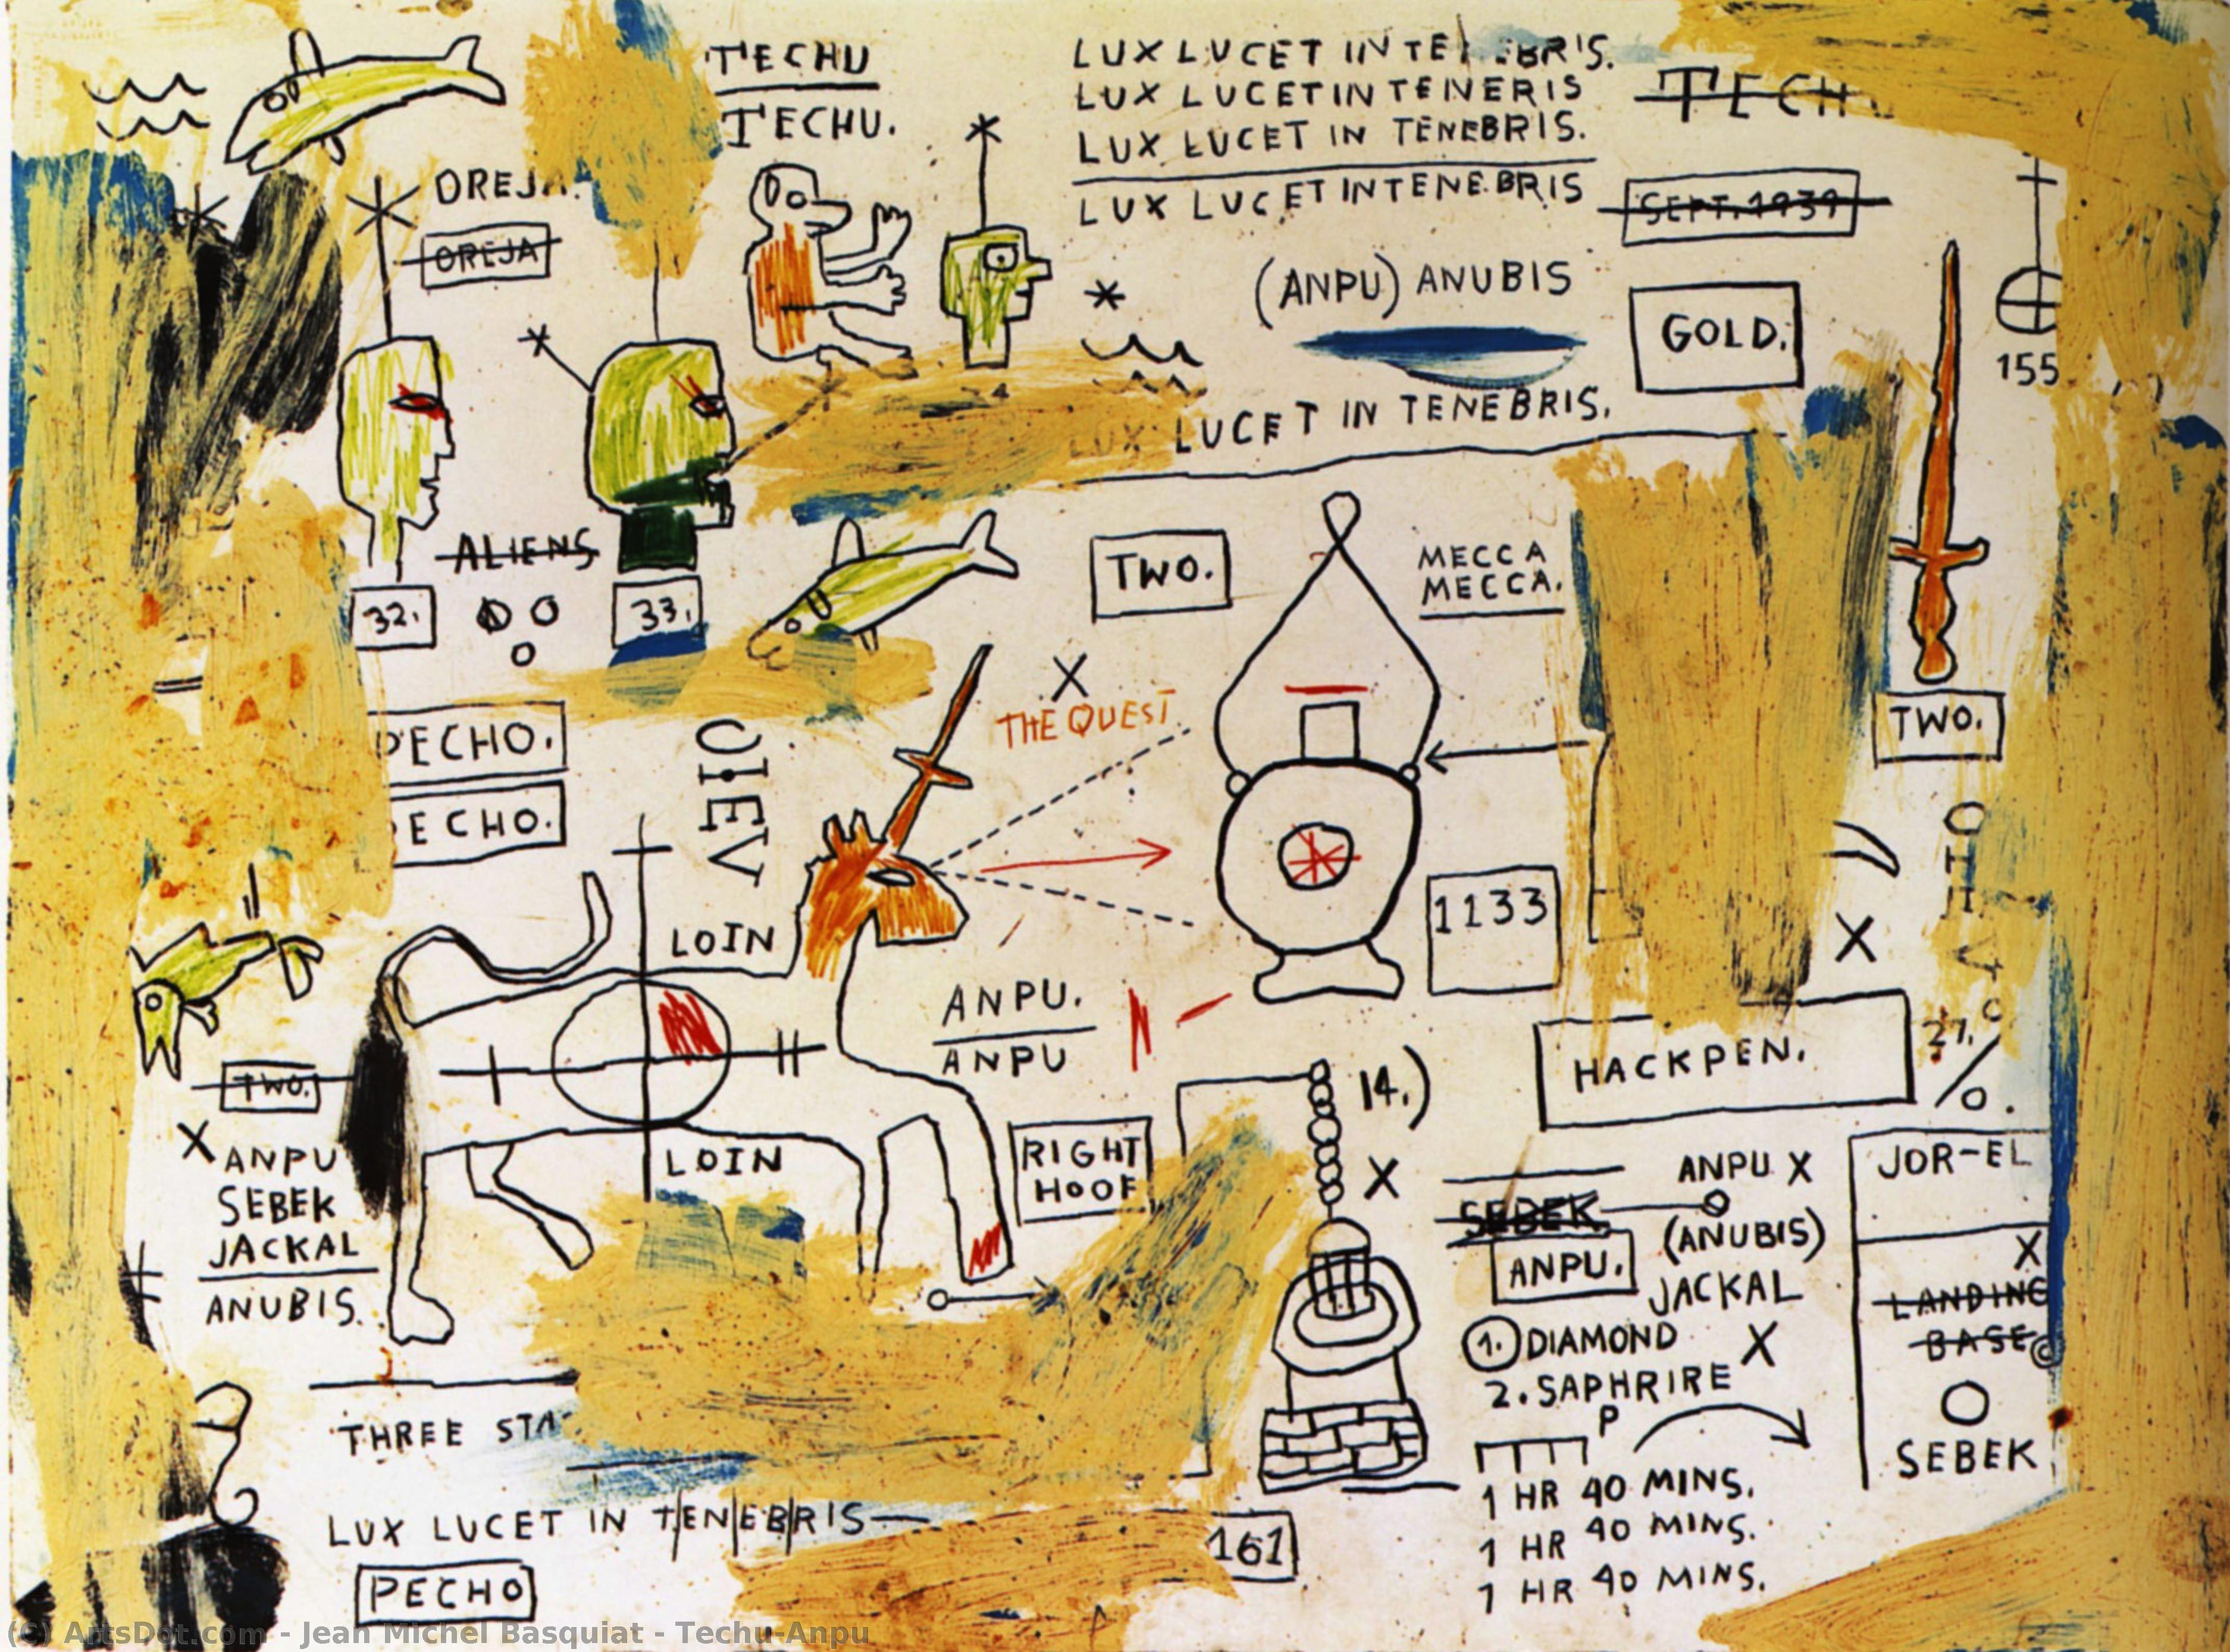 TECHU
TECHU.
LUX LUCET IN
LUX LUCET IN TENERIS
LUX LUCET IN TENEBRIS.
LUX LUCET IN TENEBRIS
TECH
OREJA.
OREJA
SEPT. 1939
(ANPU) ANUBIS
GOLD.
155
LUX LUCET IN TENEBRIS.
ALIENS
32.
33.
TWO.
MECCA
MECCA.
THE QUEST
TWO.
PECHO.
PECHO.
LOIN
1133
ANPU.
ANPU
HACKPEN.
27.
TWO.
14.)
X ANPU
SEBEK
JACKAL
ANUBIS.
LOIN
RIGHT
HOOF
ANPU X
SEBEK
(ANUBIS)
ANPU.
JACKAL
JOR-EL
X
LANDING
BASE
1. DIAMOND X
2. SAPHRIRE
P
SEBEK
THREE STA
1 HR 40 MINS.
1 HR 40 MINS.
1 HR 40 MINS.
LUX LUCET IN TENEBRIS
161
PECHO
(C) ArtsDot.com - Jean Michel Basquiat - Techu-Anpu